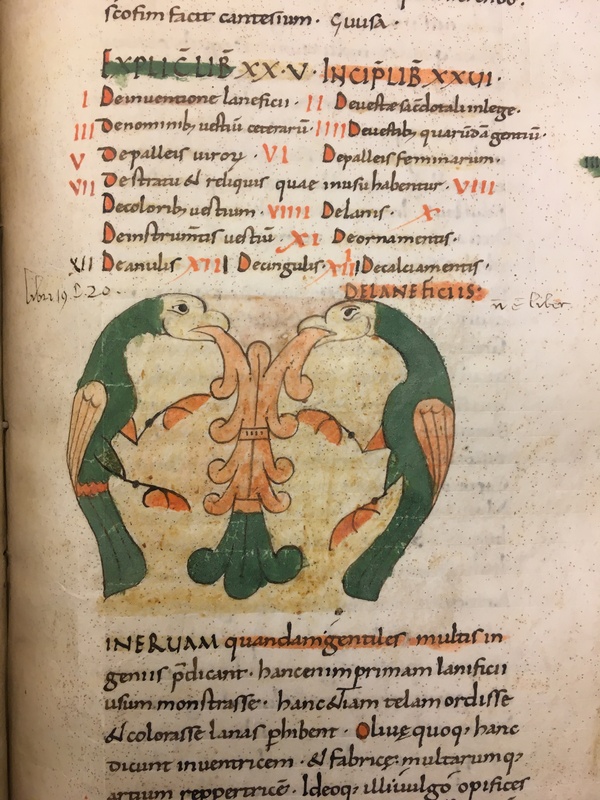 scofim facit cantesium · Guusa ·
EXPLIC̅ LIB̅ XX·V · INCIP̅ LIB̅ XXVI ·
I De inuentione laneficii · II De ueste sacdotali in lege ·
III De nominib; uestiū ceterarū · IIII De uestib; quarūdā gentiū ·
V De palleis uiroꝝ · VI De palleis feminarum ·
VII De stratu & reliquis quae in usu habentur · VIII
De coloribꝫ uestium · VIIII De lanis · X
De instrum̅tis uestiū · XI De ornamentis ·
XII De anulis XIII De cingulis · XIIII De calciamentis ·
DE LANEFICIIS:
libri 19. 20. n̄ ē liber
INERUAM quandam gentiles multis in
geniis p̄dicant · hanc enim primam lanificii
usum monstrasse · hanc &iam telam ordisse
& colorasse lanas phibent · Oliuę quoq; hanc
dicunt inuentricem · & fabricę · multarumq;
artium reppertricē · Ideoq; illi uulgo opifices